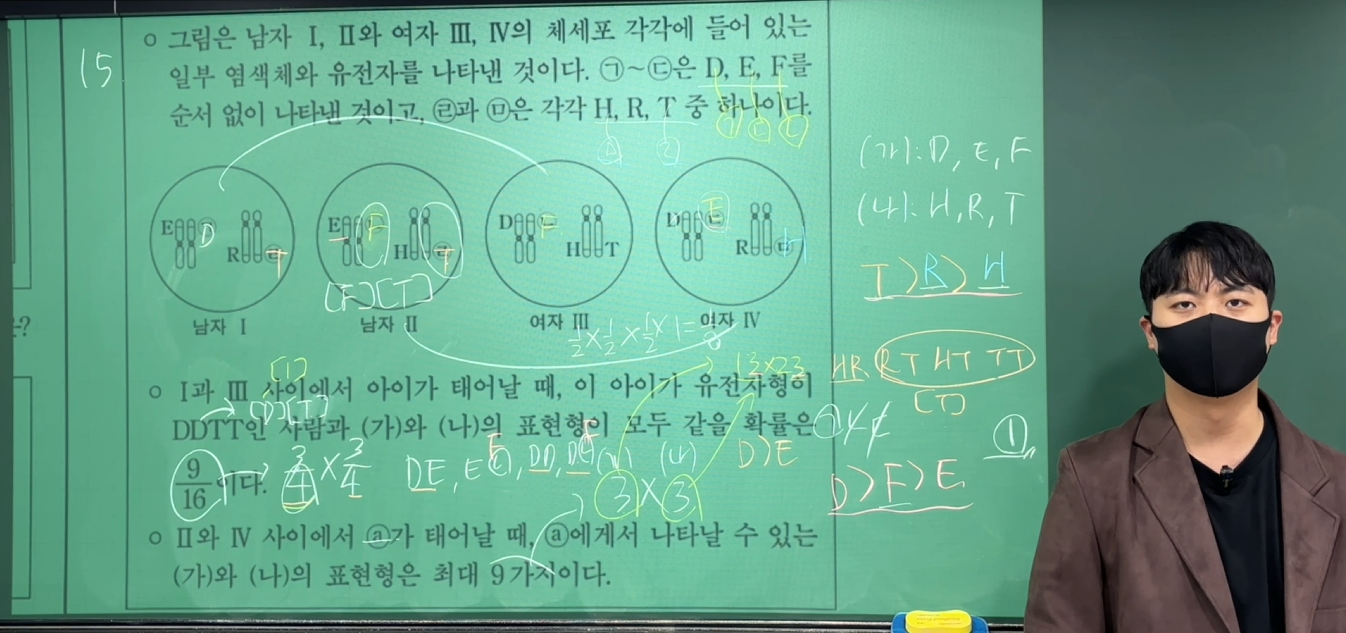 15
○ 그림은 남자 I, II와 여자 III, IV의 체세포 각각에 들어 있는
일부 염색체와 유전자를 나타낸 것이다. ㉠~㉢은 D, E, F를
순서 없이 나타낸 것이고, ㉣과 ㉤은 각각 H, R, T 중 하나이다.
㉤ ㉣
(가): D, E, F
(나): H, R, T
E D R ㉣ T
E F H ㉣ T
D F H T
D E R ㉤ H
T>R>H
[F][T]
남자 I 남자 II 여자 III 여자 IV
1/2×1/2×1/2×1=1/8
HR RT HT TT
[T]
○ I과 III 사이에서 아이가 태어날 때, 이 아이가 유전자형이
[D][T]
DDTT인 사람과 (가)와 (나)의 표현형이 모두 같을 확률은
9/16이다.
3/4×3/4
(가) (나)
3×3
D>E
D>F>E
①
○ II와 IV 사이에서 ⓐ가 태어날 때, ⓐ에게서 나타날 수 있는
(가)와 (나)의 표현형은 최대 9가지이다.